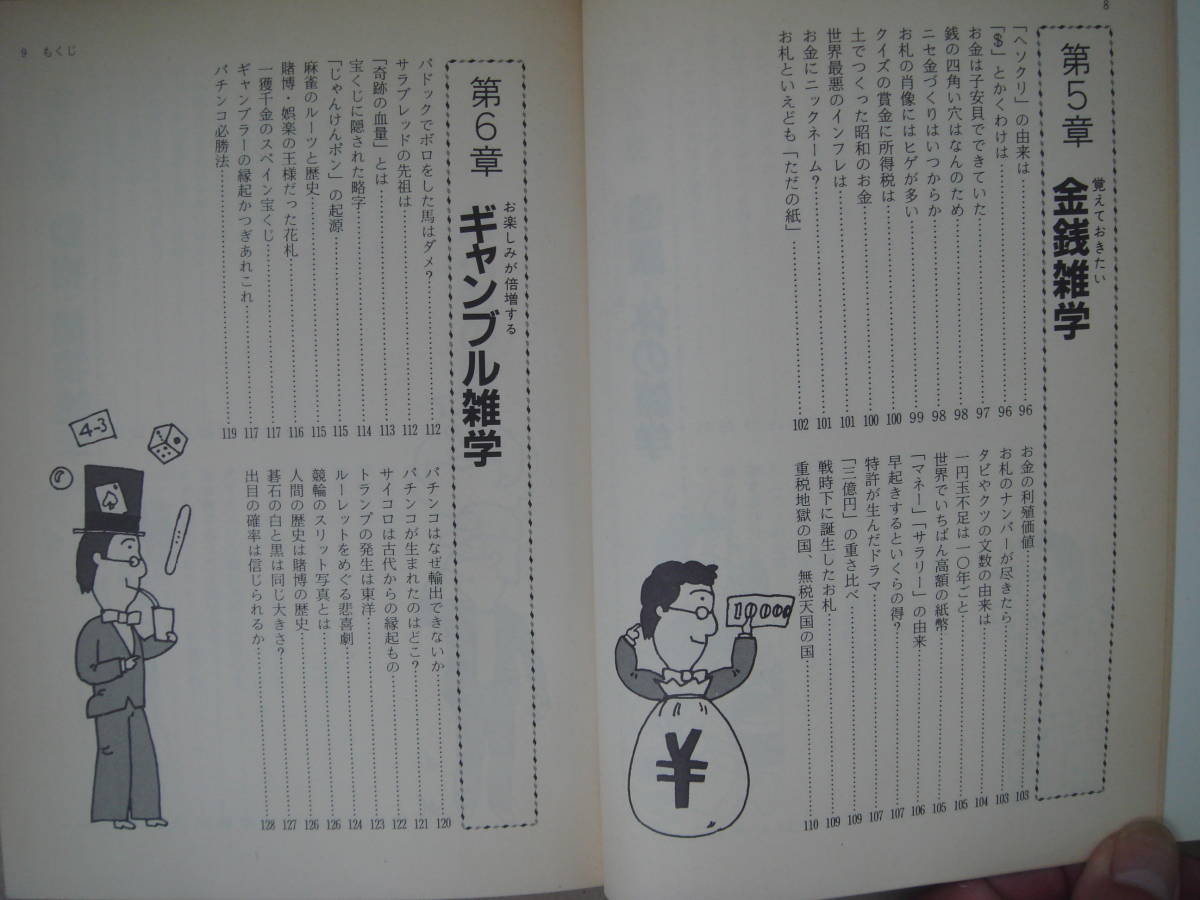 8
第5章 覚えておきたい 金銭雑学
「ヘソクリ」の由来は……96
「$」とかくわけは……96
お金は子安貝でできていた……97
銭の四角い穴はなんのため……98
ニセ金づくりはいつからか……98
お札の肖像にはヒゲが多い……99
クイズの賞金に所得税は……100
土でつくった昭和のお金……100
世界最悪のインフレは……101
お金にニックネーム?……101
お札といえども「ただの紙」……102
お金の利殖価値……103
お札のナンバーが尽きたら……103
タビやクツの文数の由来は……104
一円玉不足は一〇年ごと……105
世界でいちばん高額の紙幣……105
「マネー」「サラリー」の由来……106
早起きするといくらの得?……107
特許が生んだドラマ……107
「三億円」の重さ比べ……109
戦時下に誕生したお札……109
重税地獄の国、無税天国の国……110
10000
¥
9 もくじ
第6章 お楽しみが倍増する ギャンブル雑学
パドックでボロをした馬はダメ?……112
サラブレッドの先祖は……112
「奇跡の血量」とは……113
宝くじに隠された略字……114
「じゃんけんポン」の起源……115
麻雀のルーツと歴史……115
賭博・娯楽の王様だった花札……116
一獲千金のスペイン宝くじ……117
ギャンブラーの縁起かつぎあれこれ……117
パチンコ必勝法……119
パチンコはなぜ輸出できないか……120
パチンコが生まれたのはどこ?……121
サイコロは古代からの縁起もの……122
トランプの発生は東洋……123
ルーレットをめぐる悲喜劇……124
競輪のスリット写真とは……126
人間の歴史は賭博の歴史……126
碁石の白と黒は同じ大きさ?……127
出目の確率は信じられるか……128
4-3